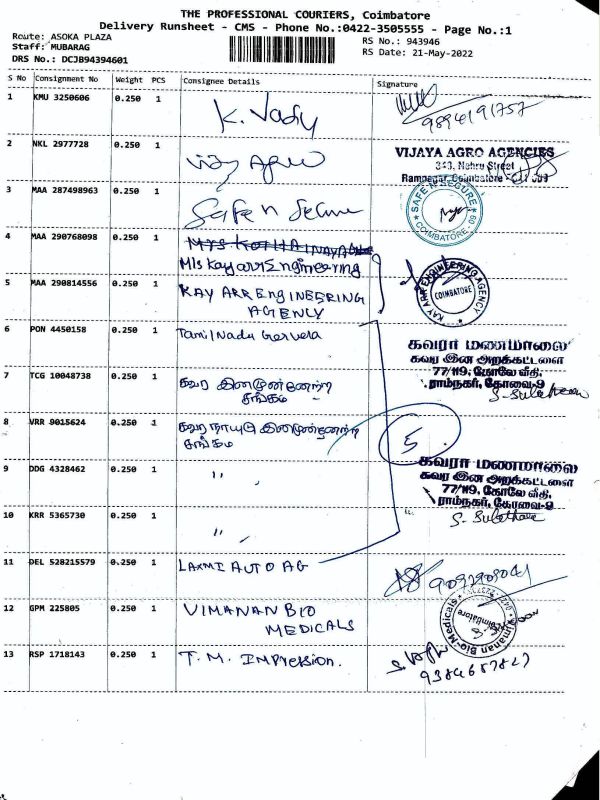 THE PROFESSIONAL COURIERS, Coimbatore
Delivery Runsheet - CMS - Phone No.:0422-3505555 - Page No.:1
Route: ASOKA PLAZA
Staff: MUBARAG
DRS No.: DCJB94394601
RS No.: 943946
RS Date: 21-May-2022
S No Consignment No Weight PCS Consignee Details Signature
1 KMU 3250606 0.250 1 K. Vady
9894191757
2 NKL 2977728 0.250 1 Vijay Agro
VIJAYA AGRO AGENCIES
343, Nehru Street
Ramnagar, Coimbatore
3 MAA 287498963 0.250 1 Safe n Secure
SAFE N SECURE
COIMBATORE
4 MAA 290768098 0.250 1
M/s Kay arr Engineering
5 MAA 290814556 0.250 1 KAY ARR ENGINEERING
AGENCY
KAY ARR ENGINEERING AGENCY
COIMBATORE
6 PON 4450158 0.250 1 Tamil Nadu
கவரா மணமாலை
கவர இன அறக்கட்டளை
77/119, கோலே வீதி,
ராம்நகர், கோவை-9
7 TCG 10048738 0.250 1 கவர இனமுன்னேற்ற
சங்கம்
8 VRR 9015624 0.250 1 கவர நாயுடு இனமுன்னேற்ற
சங்கம்
5
9 DDG 4328462 0.250 1 " "
கவரா மணமாலை
கவர இன அறக்கட்டளை
77/119, கோலே வீதி,
ராம்நகர், கோவை-9
10 KRR 5365730 0.250 1 " "
11 DEL 528215579 0.250 1 LAXMI AUTO AG
12 GPM 225805 0.250 1 VIMANAN BIO
MEDICALS
Vimanan Bio-Medicals
Coimbatore
13 RSP 1718143 0.250 1 T. M. Impression.
9384657827